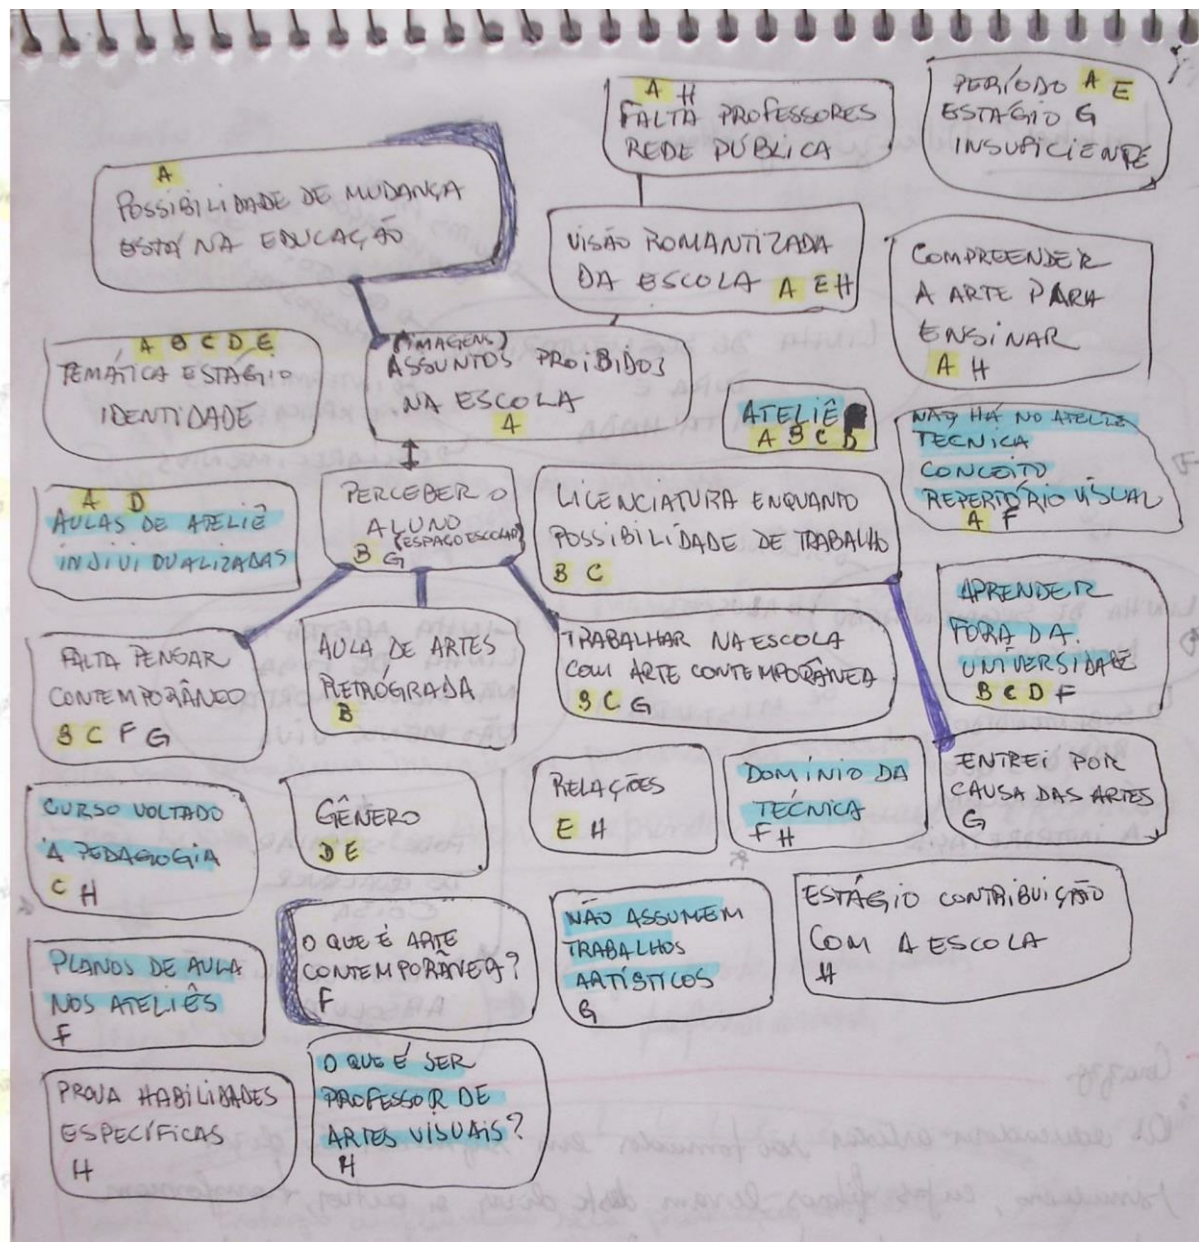 A H
FALTA PROFESSORES
REDE PÚBLICA
PERÍODO A E
ESTÁGIO G
INSUFICIENTE
A
POSSIBILIDADE DE MUDANÇA
ESTÁ NA EDUCAÇÃO
VISÃO ROMANTIZADA
DA ESCOLA A E H
COMPREENDER
A ARTE PARA
ENSINAR
A H
A B C D E
TEMÁTICA ESTÁGIO
IDENTIDADE
(IMAGENS)
ASSUNTOS PROIBIDOS
NA ESCOLA
A
ATELIÊ
A B C D
NÃO HÁ NO ATELIÊ
TECNICA
CONCEITO
REPERTÓRIO VISUAL
A F
A D
AULAS DE ATELIÊ
INDIVIDUALIZADAS
PERCEBER O
ALUNO
(ESPAÇO ESCOLAR)
B G
LICENCIATURA ENQUANTO
POSSIBILIDADE DE TRABALHO
B C
APRENDER
FORA DA
UNIVERSIDADE
B C D F
FALTA PENSAR
CONTEMPORÂNEO
B C F G
AULA DE ARTES
RETRÓGRADA
B
TRABALHAR NA ESCOLA
COM ARTE CONTEMPORÂNEA
B C G
ENTREI POR
CAUSA DAS ARTES
G
CURSO VOLTADO
A PEDAGOGIA
C H
GÊNERO
D E
RELAÇÕES
E H
DOMÍNIO DA
TÉCNICA
F H
PLANOS DE AULA
NOS ATELIÊS
F
O QUE É ARTE
CONTEMPORÂNEA?
F
NÃO ASSUMEM
TRABALHOS
ARTÍSTICOS
G
ESTÁGIO CONTRIBUIÇÃO
COM A ESCOLA
H
PROVA HABILIDADES
ESPECÍFICAS
H
O QUE É SER
PROFESSOR DE
ARTES VISUAIS?
H